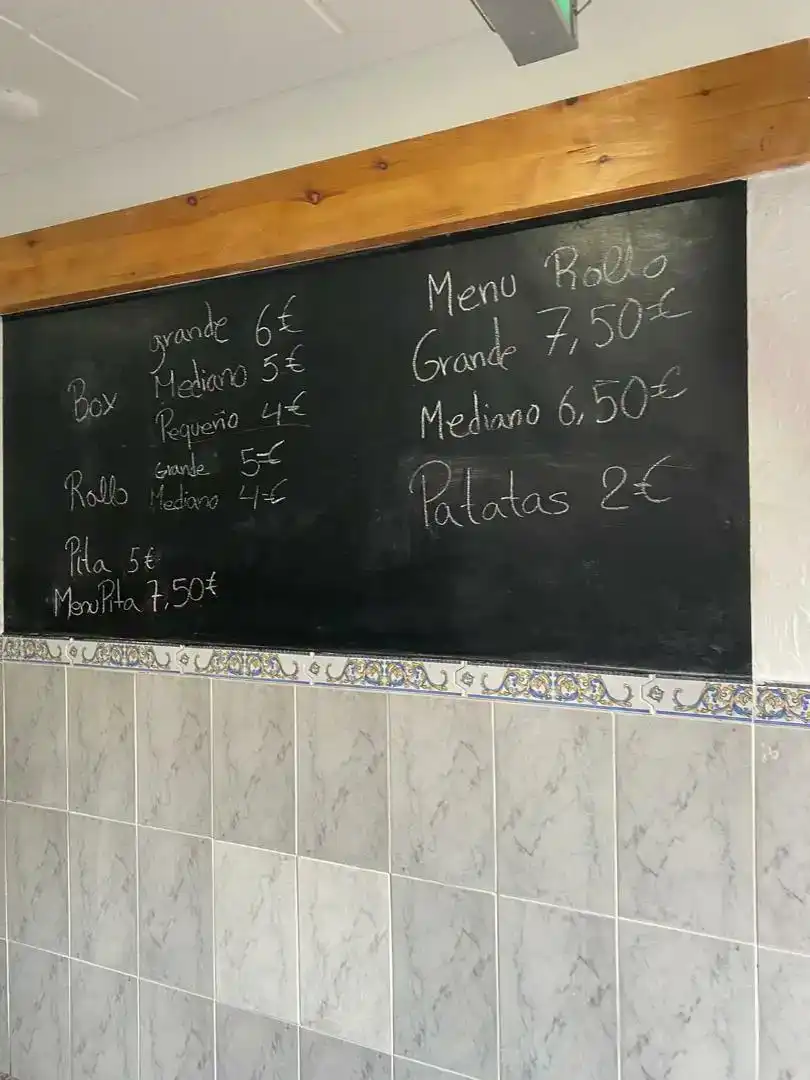 grande 6€
Box Mediano 5€
Pequeño 4€
Rollo Grande 5€
Mediano 4€
Pita 5€
Menu Pita 7,50€
Menu Rollo
Grande 7,50€
Mediano 6,50€
Patatas 2€